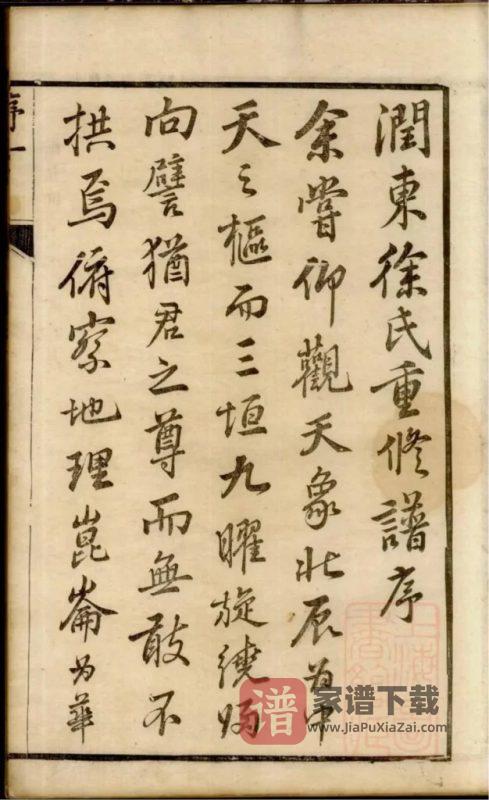 潤東徐氏重修譜序
余嘗仰觀天象北辰為中
天之樞而三垣九曜旋繞
向譬猶君之尊而無敢不
拱焉俯察地理崑崙为華
序一
谱 家谱下载
www.JiaPuXiaZai.com